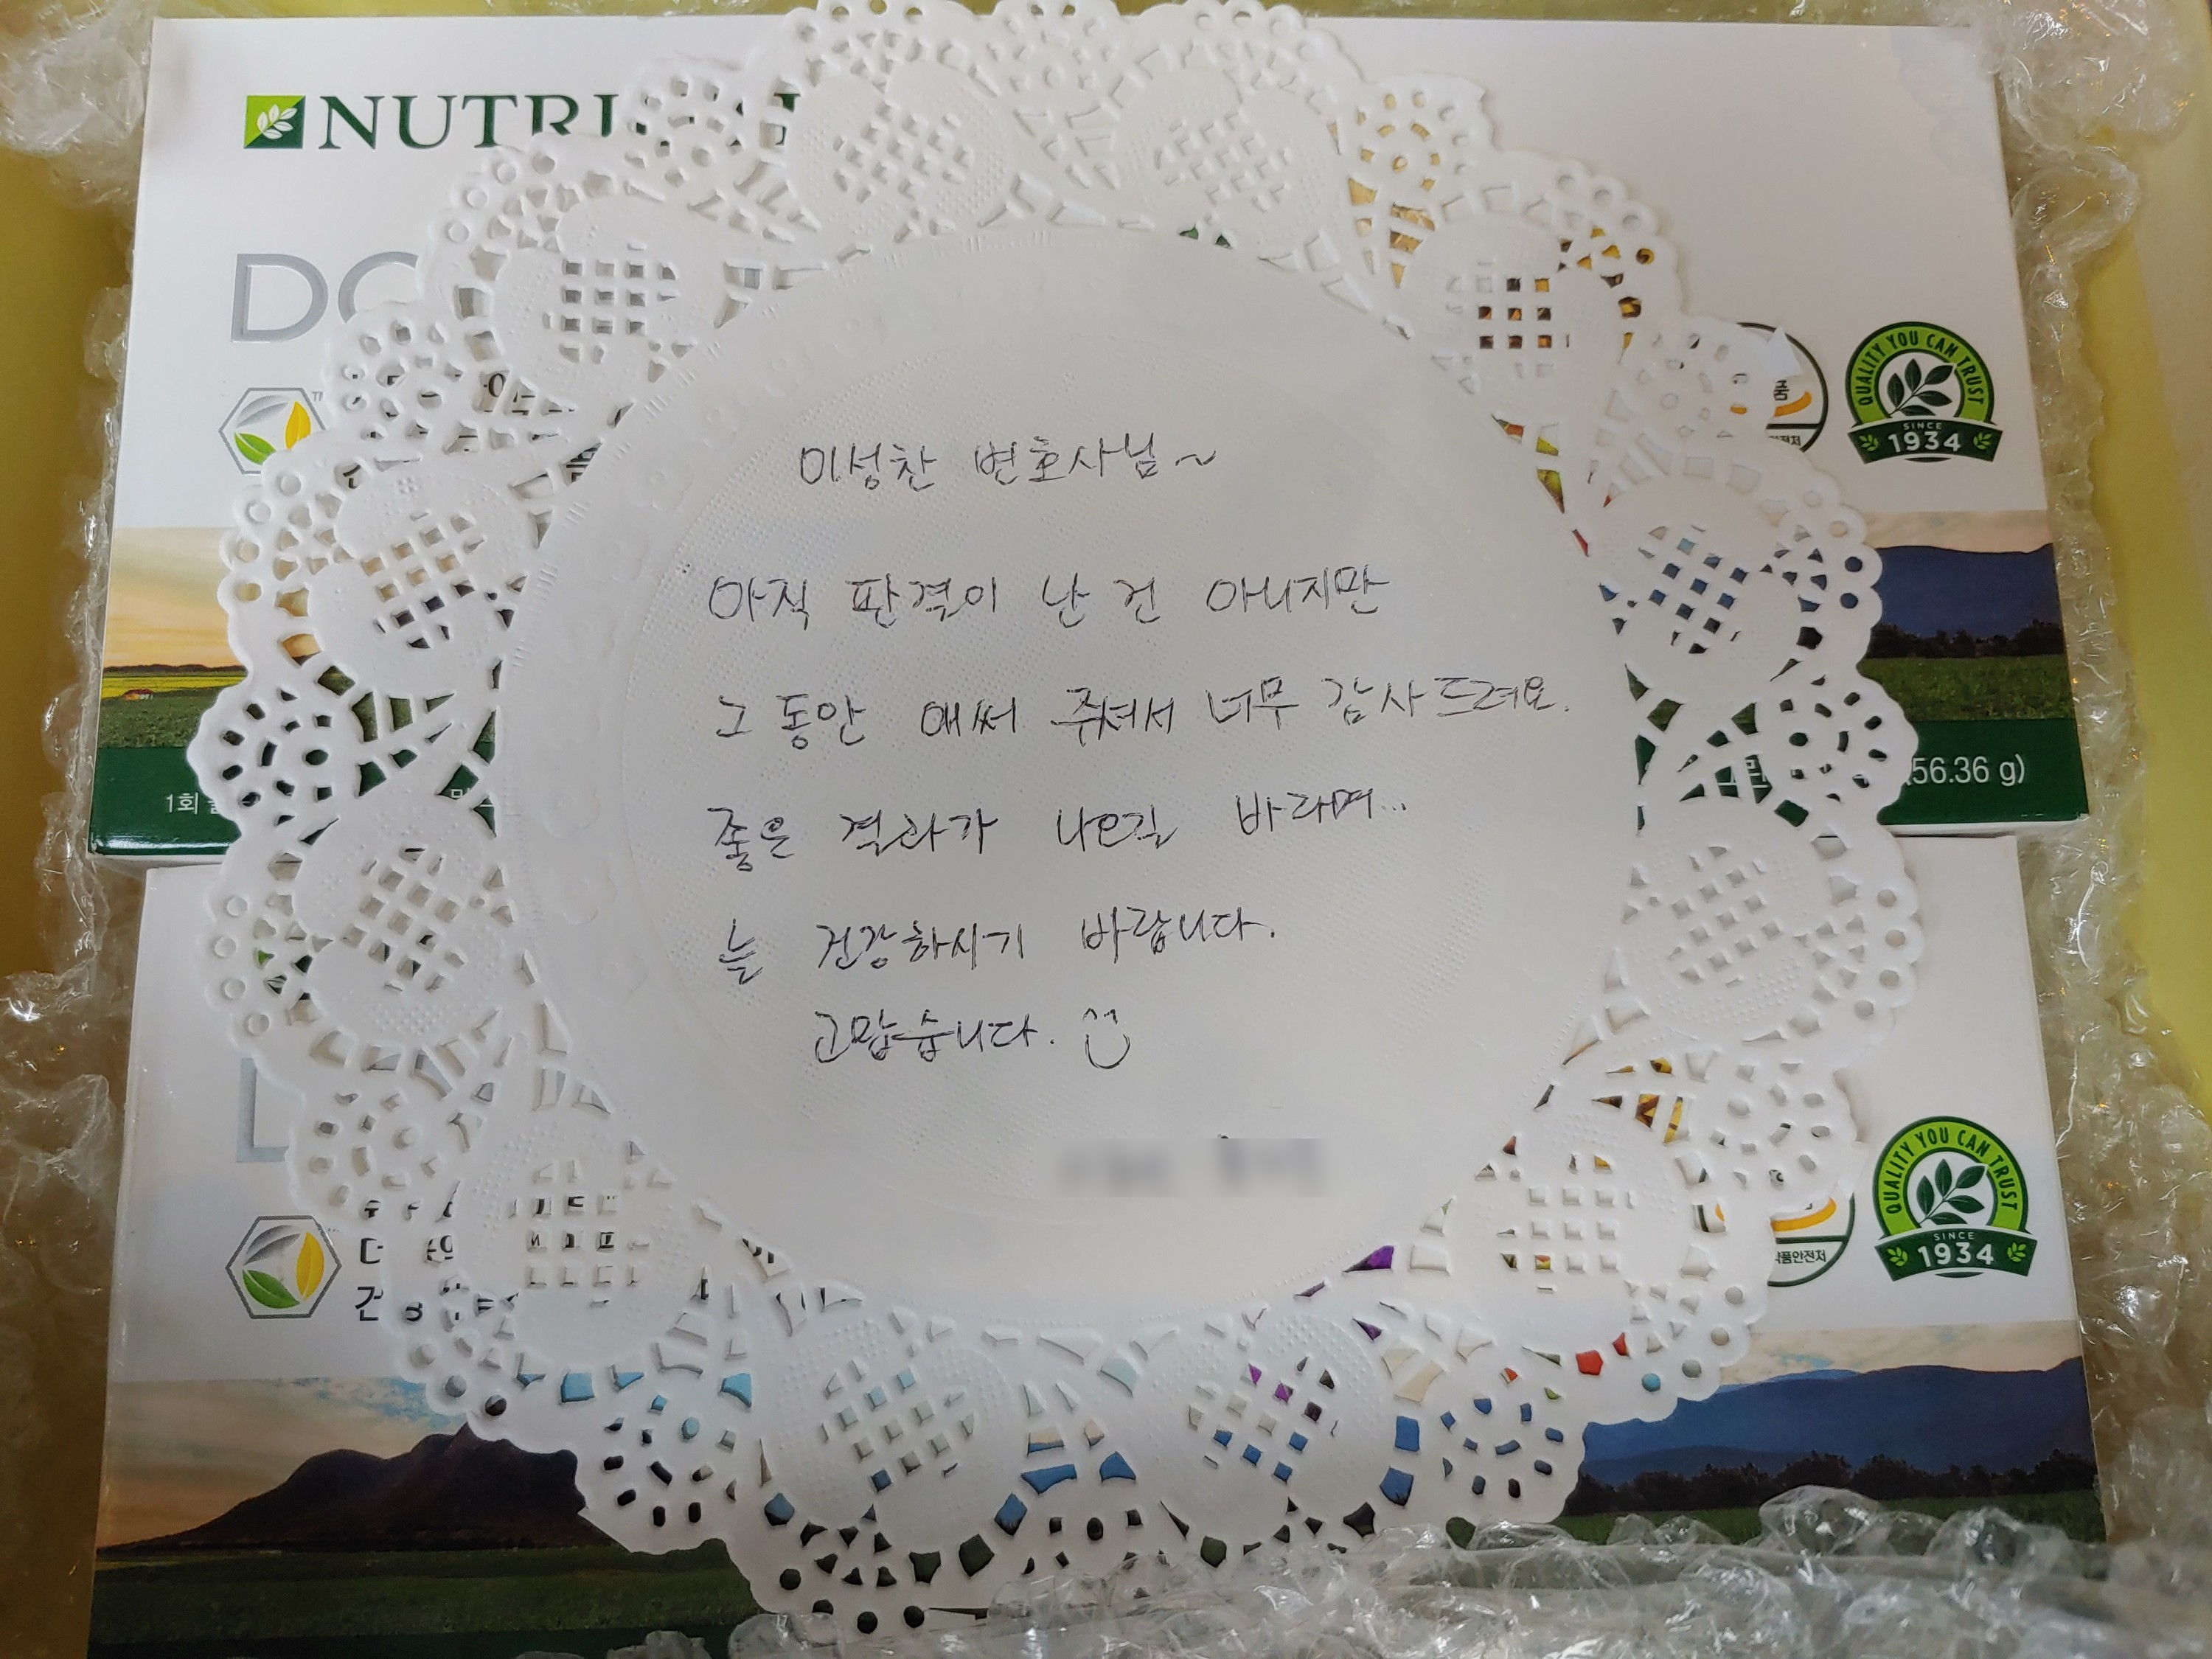 NUTRI
TM
QUALITY YOU CAN TRUST
SINCE
1934
이성찬 변호사님~
아직 판결이 난 건 아니지만
그동안 애써 주셔서 너무 감사드려요.
좋은 결과가 나오길 바라며...
늘 건강하시기 바랍니다.
고맙습니다.
1회
56.36 g)
QUALITY YOU CAN TRUST
SINCE
1934